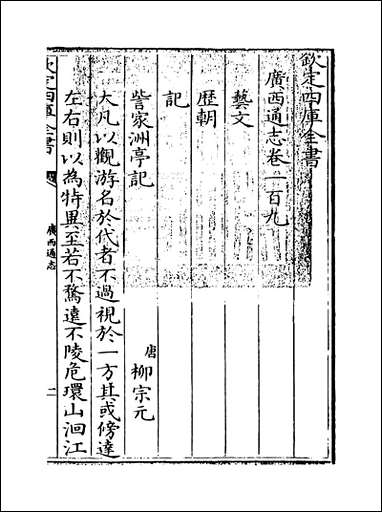 欽定四庫全書
廣西通志卷一百九
藝文
歴朝
記
訾家洲亭記 唐 柳宗元
大凡以觀游名於代者不過視於一方其或傍達
左右則以為特異至若不騖遠不陵危環山洄江
欽定四庫全書 廣西通志 二